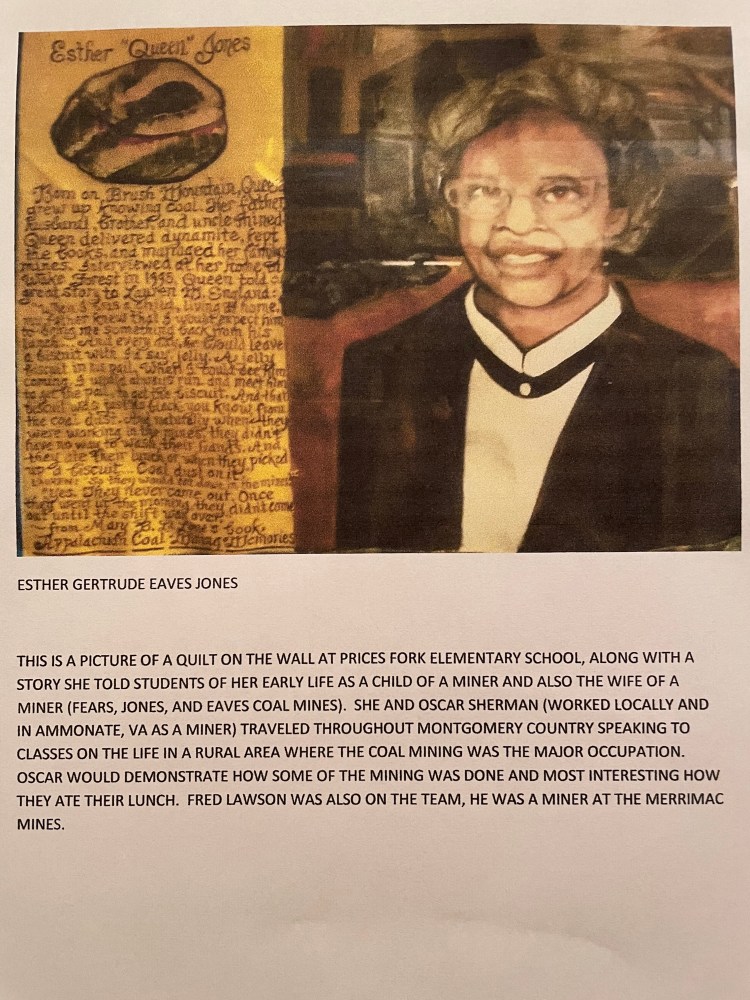 Esther "Queen" Jones
Born on Brush Mountain, Queen
grew up knowing coal. Her father
husband, brother, and uncle mined.
Queen delivered dynamite, kept
the books, and managed her family
mines. Interviewed at her home
Wake Forest in 1995, Queen told a
great story to
living at home,
knew that I would expect him
to bring me something back from
lunch. And every day, he would leave
a biscuit with, I'd say, jelly. A jelly
biscuit in his pail. When I could see him
coming, I would always run and meet him
to get the pail, to get the biscuit. And that
biscuit was just as black, you know, from
the coal dust, cause naturally when they
were working in the mines, they didn't
have no way to wash their hands. And
they ate their lunch, or when they picked
up a biscuit Coal dust on it
they would eat down in the mines
Yes. They never came out. Once
they went in the morning they didn't come
out until the shift was over.
from Mary B. La Lone's book,
Appalachian Coal Mining Memories
ESTHER GERTRUDE EAVES JONES
THIS IS A PICTURE OF A QUILT ON THE WALL AT PRICES FORK ELEMENTARY SCHOOL, ALONG WITH A
STORY SHE TOLD STUDENTS OF HER EARLY LIFE AS A CHILD OF A MINER AND ALSO THE WIFE OF A
MINER (FEARS, JONES, AND EAVES COAL MINES). SHE AND OSCAR SHERMAN (WORKED LOCALLY AND
IN AMMONATE, VA AS A MINER) TRAVELED THROUGHOUT MONTGOMERY COUNTRY SPEAKING TO
CLASSES ON THE LIFE IN A RURAL AREA WHERE THE COAL MINING WAS THE MAJOR OCCUPATION.
OSCAR WOULD DEMONSTRATE HOW SOME OF THE MINING WAS DONE AND MOST INTERESTING HOW
THEY ATE THEIR LUNCH. FRED LAWSON WAS ALSO ON THE TEAM, HE WAS A MINER AT THE MERRIMAC
MINES.